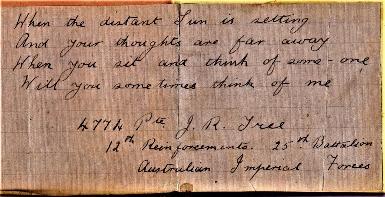 When the distant Sun is setting
And your thoughts are far away
When you sit and think of some-one
Will you sometimes think of me
4774 Pte. J. R. Tree
12th Reinforcements. 25th Battalion
Australian Imperial Forces